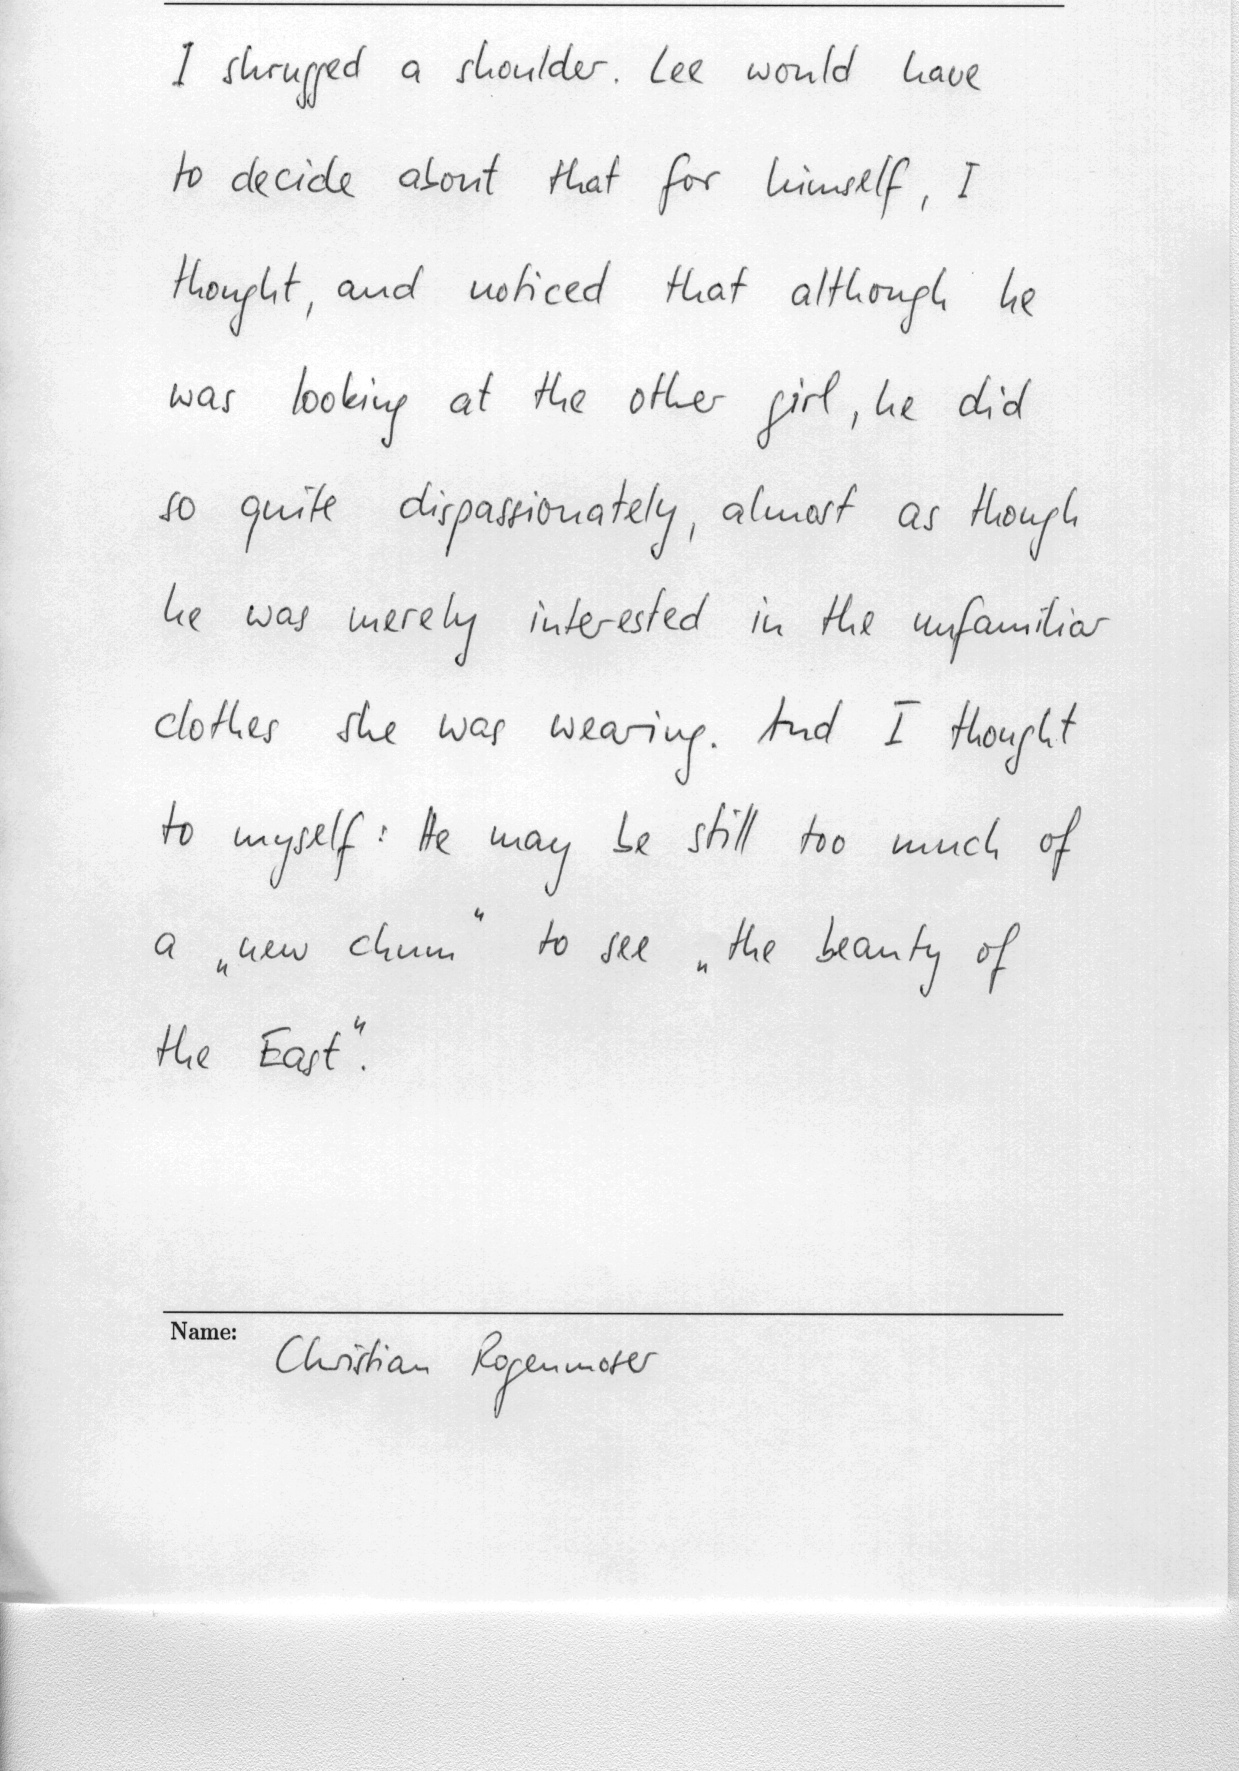 I shrugged a shoulder. Lee would have
to decide about that for himself, I
thought, and noticed that although he
was looking at the other girl, he did
so quite dispassionately, almost as though
he was merely interested in the unfamiliar
clothes she was wearing. And I thought
to myself: He may be still too much of
a „new chum" to see „the beauty of
the East".
Name:
Christian Rogenmoser